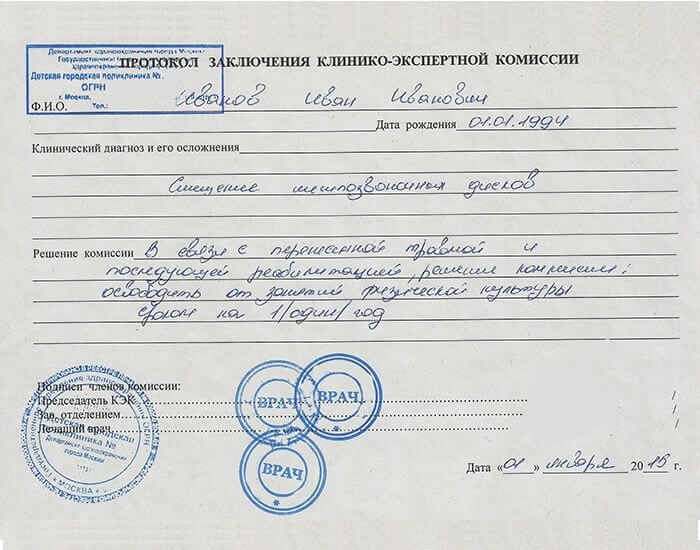 Департамент здравоохранения города Москвы
Государственное бюджетное
здравоохранения
ПРОТОКОЛ ЗАКЛЮЧЕНИЯ КЛИНИКО-ЭКСПЕРТНОЙ КОМИССИИ
Детская городская поликлиника №
ОГРН
г. Москва, Тел.:
Ф.И.О. Иванов Иван Иванович
Дата рождения 01.01.1994
Клинический диагноз и его осложнения
Смещение межпозвоночных дисков
Решение комиссии В связи с перенесенной травмой и
последующей реабилитацией, решение комиссии:
освободить от занятий физической культуры
сроком на 1/один/ год
Подписи членов комиссии:
Председатель КЭК
Зав. отделением
Лечащий врач
ВРАЧ
ВРАЧ
ВРАЧ
Детская городская
поликлиника №
Департамент здравоохранения
города Москвы
МОСКВА
ОГРН
Дата «01» января 2015 г.